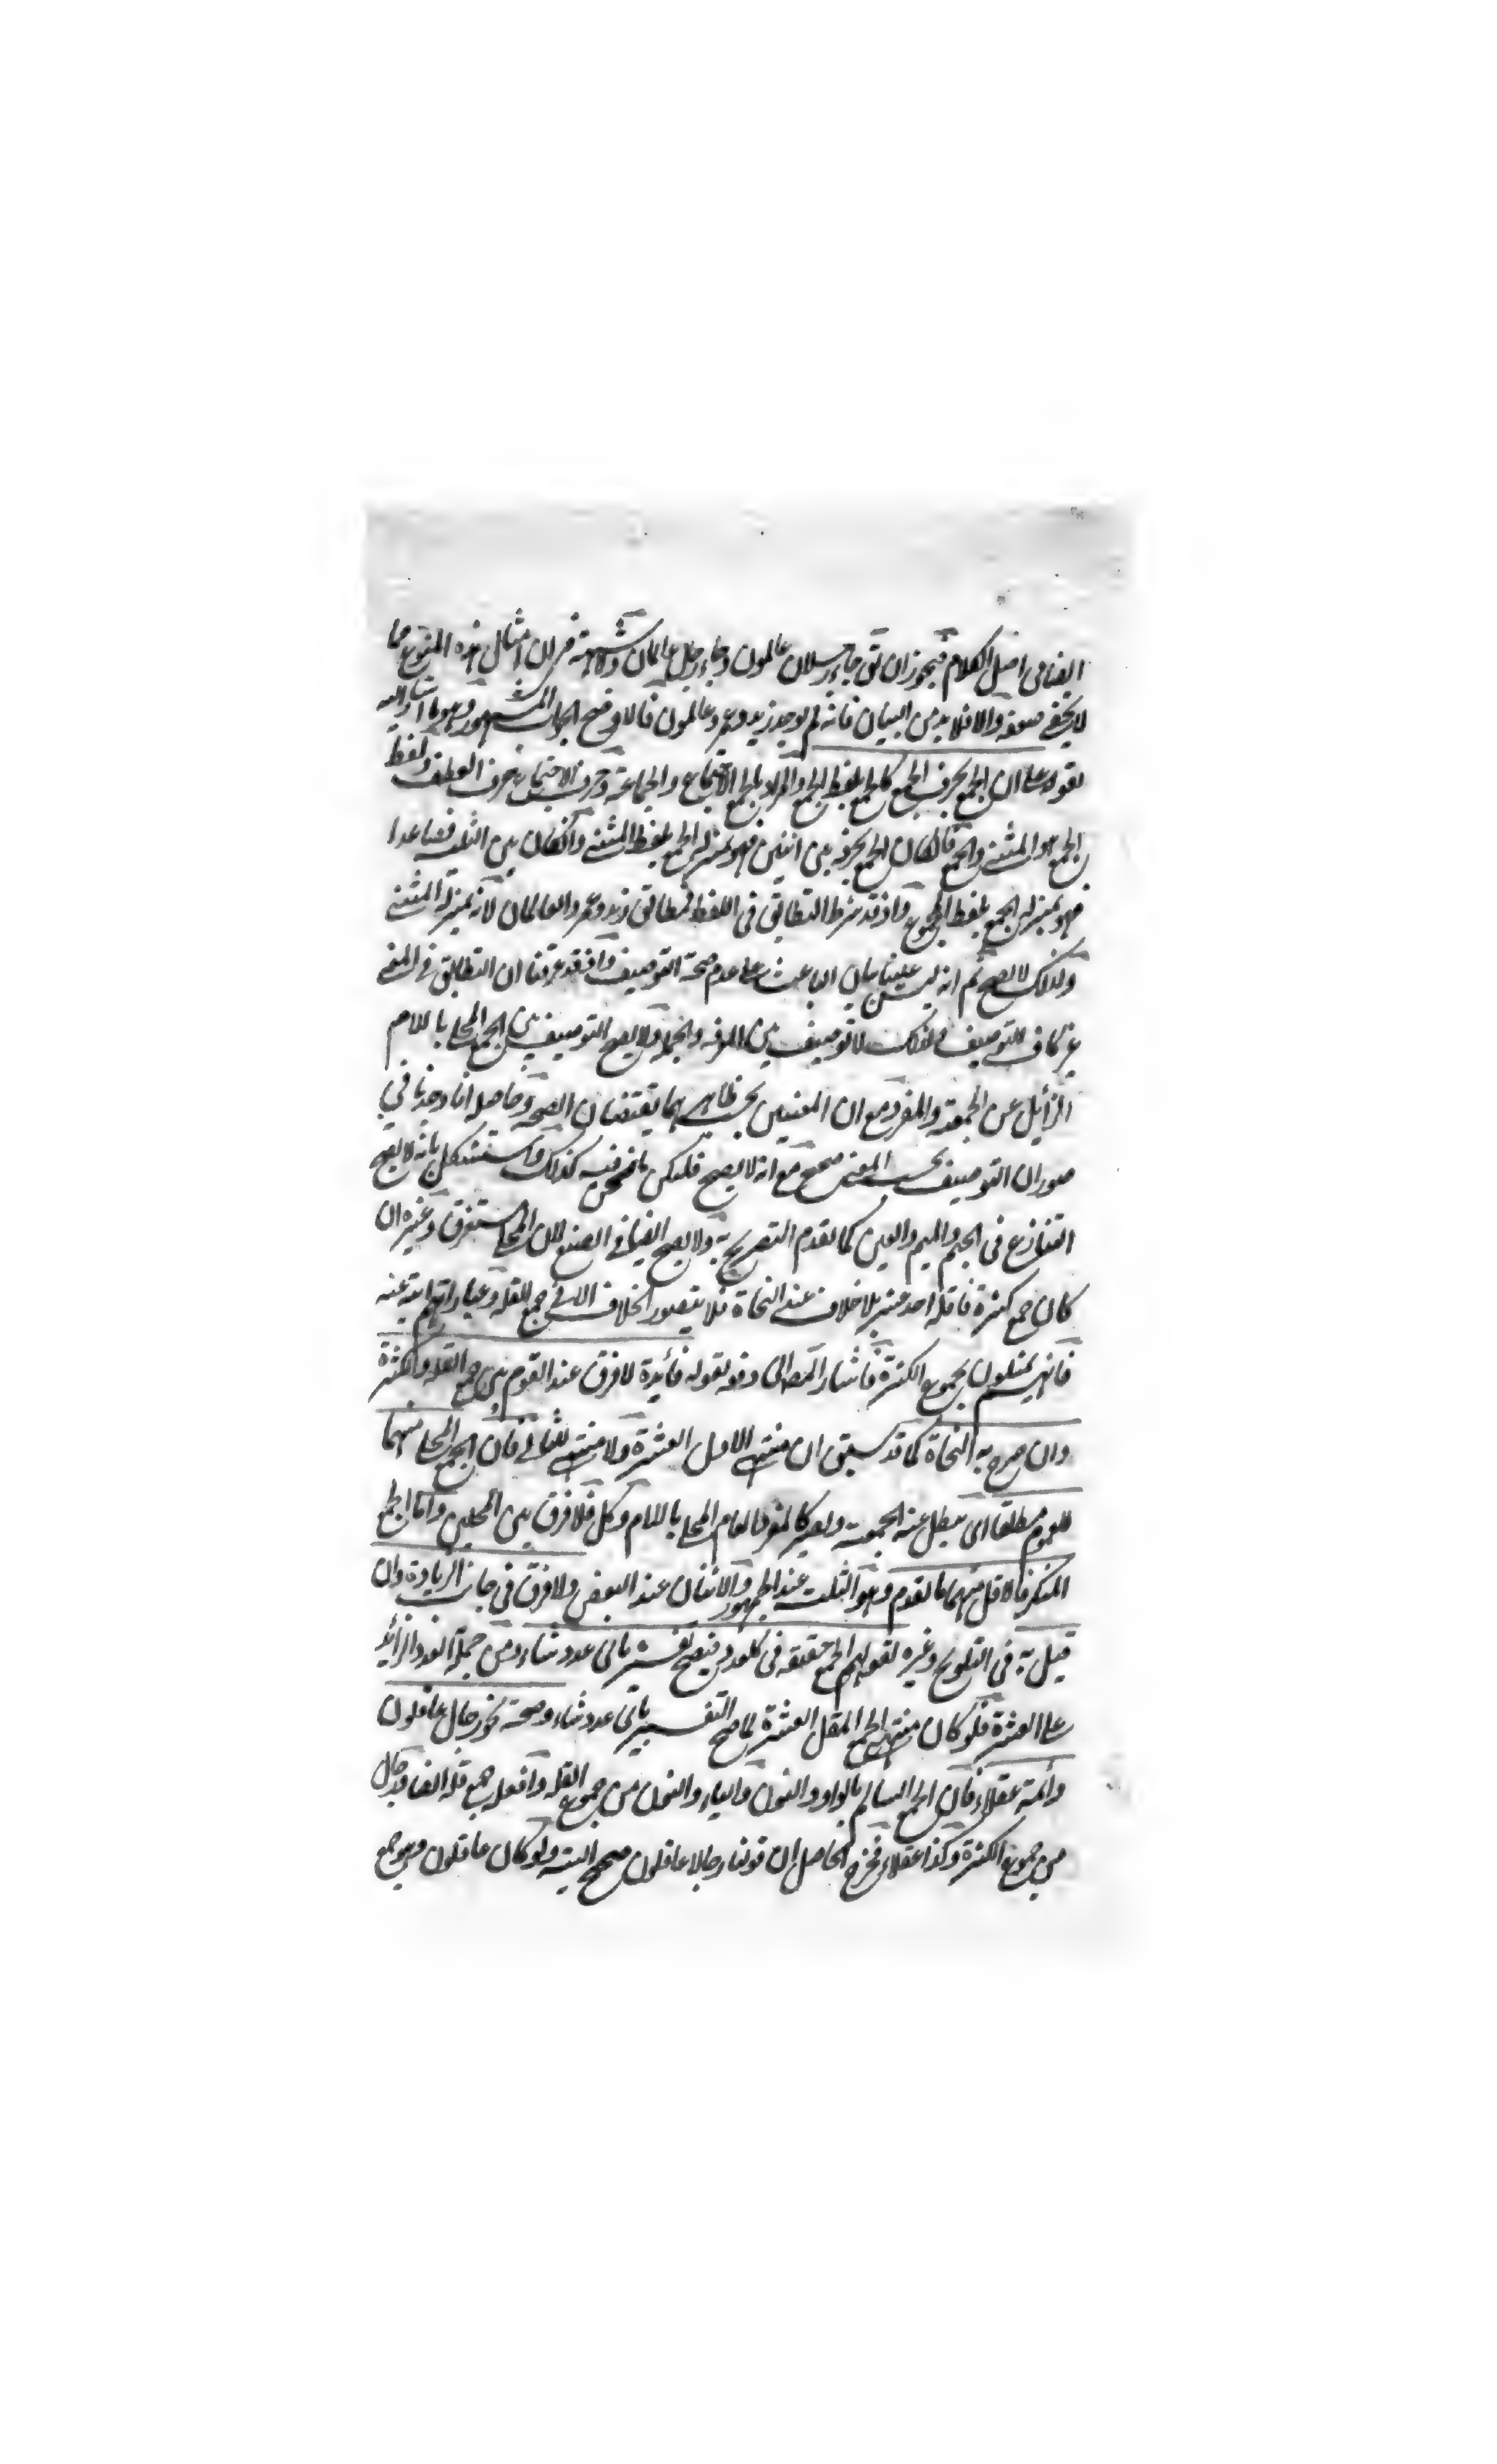 ايضا في اصل الكلام فيجوز ان يق جاء رجلان عالمون وجاء رجل عالمان ولا شبهة في ان امثال هذه المنوع مما
لا يخفى ضعفه والا فلا بد من البيان فانه لم يوجد زيد وعمرو عالمون فالاوضح الجواب المشهور وهو ما اشار اليه
بقوله على ان الجمع بحرف الجمع كالجمع بلفظ الجمع والمراد بالجمع الاجتماع والجماعة وحرف الاجتماع حرف العطف ولفظ
الجمع هو المثنى والجمع فان كان الجمع بحرفه بين اثنين فهو بمنزلة الجمع بلفظ المثنى وان كان بين الثلث فصاعدا
فهو بمنزلة الجمع بلفظ الجموع واذ قد شرط التطابق في اللفظ فيطابق زيد وعمرو العالمان لانه بمنزلة المثنى
ولذلك لا يصح ثم انه ليس علينا بيان الباعث على عدم صحة التوصيف واذ قد عرفنا ان التطابق في المعنى
غير كاف للتوصيف ولذلك لا توصيف بين المعرفة والجملة ولا يصح التوصيف بين الجمع المحلى باللام
الزائل عن الجمعية والمفرد مع ان المعنيين بحسب ظاهرهما يقتضيان الصحة وحاصله انا وجدنا في
صور ان التوصيف بحسب المعنى صحيح مع انه لا يصح فليكن ما نحن فيه كذلك واستشكل بانه لا يصح
التنازع في الجيم والميم والعين كما تقدم التصريح به ولا يصح ايضا في الصيغ لان المحلى مستغرق وغيره ان
كان جمع كثرة فاقله احد عشر بلا خلاف عند النحاة فلا يتصور الخلاف الا في جمع القلة وعباراتهم ابية عنه
فانهم يمثلون بجموع الكثرة فاشار المص الى دفعه بقوله فائدة لا فرق عند القوم بين جمع القلة والكثرة
وان صرح به النحاة كما قد سبق ان منتهى الاول العشرة ولا منتهى للثاني فان الجمع المحلى منهما
للعموم مطلقا اي يبطل عنه الجمعية ويصير كالمفرد العام المحلى باللام وكل فلا فرق بين المحليين واما الجمع
المنكر فالاقل منهما ما تقدم وهو الثلث عند الجمهور والاثنان عند البعض ولا فرق في جانب الزيادة وان
قيل به في التلويح وغيره لقولهم الجمع حقيقة في كل عدد فيصح تفسيره باي عدد شاء ومن جملة العدد الزائد
على العشرة فلو كان منتهى الجمع المقل العشرة لما صح التفسير باي عدد شاء وصحة نحو رجال عاقلون
وائمة عقلاء فان الجمع السالم بالواو والنون والياء والنون من جموع القلة وافعله جمع قلة ايضا ورجال
من جموع الكثرة وكذا عقلاء فخرج الحاصل ان قولنا رجالا عاقلون صحيح البتة ولو كان عاقلون وهو جمع